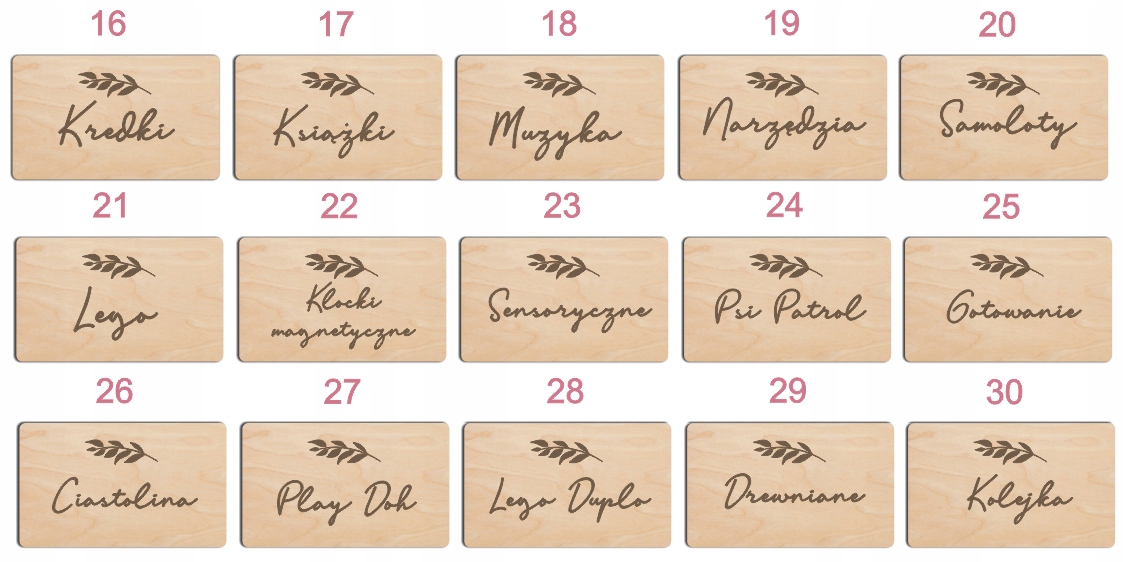 16 17 18 19 20
Kredki Książki Muzyka Narzędzia Samoloty
21 22 23 24 25
Lego Klocki magnetyczne Sensoryczne Psi Patrol Gotowanie
26 27 28 29 30
Ciastolina Play Doh Lego Duplo Drewniane Kolejka